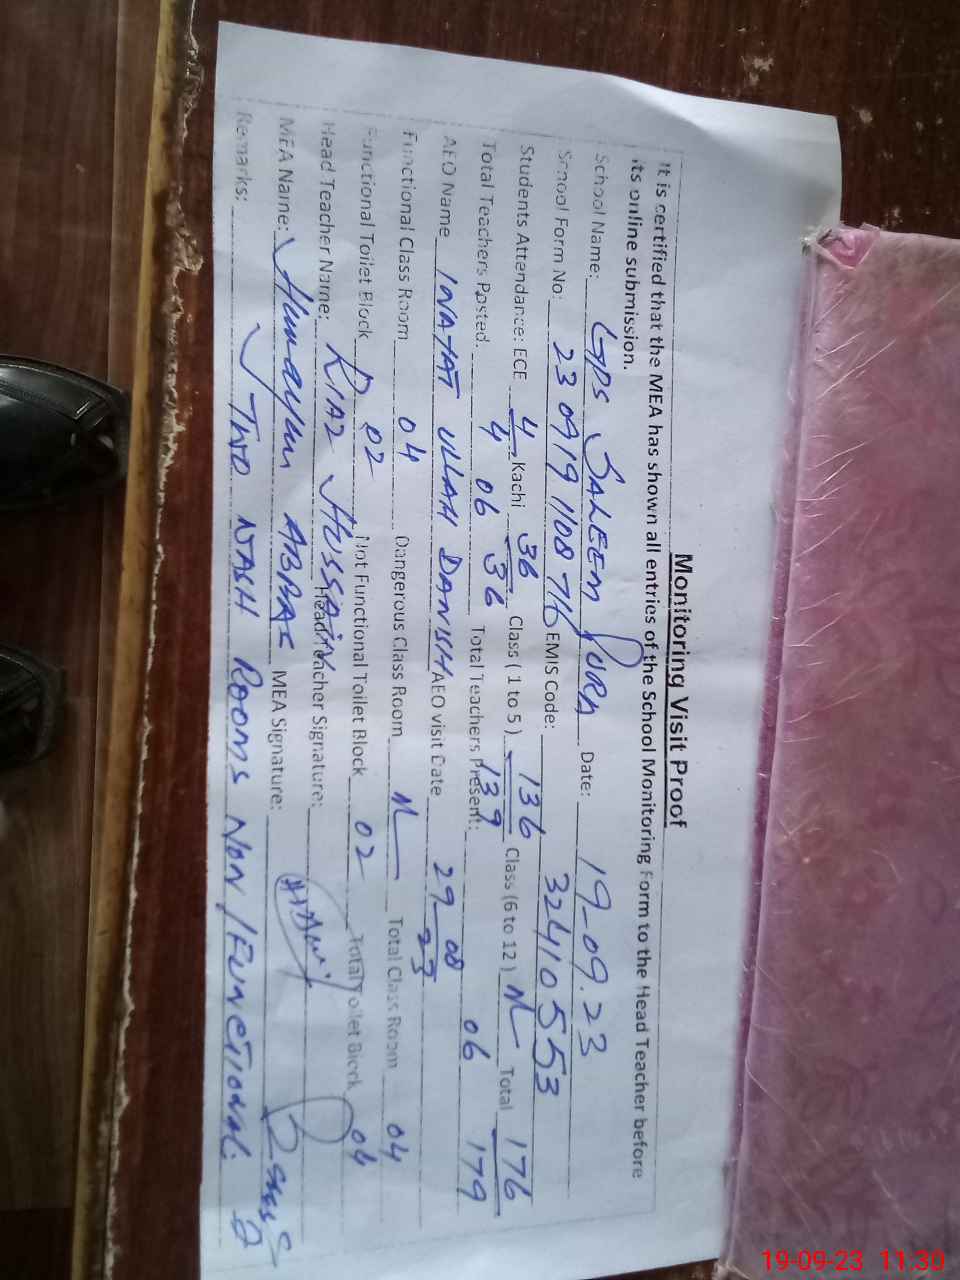 Monitoring Visit Proof
It is certified that the MEA has shown all entries of the School Monitoring Form to the Head Teacher before
its online submission.
School Name: GPS SALEEM PURA Date: 19-09.23
School Form No: 23 0919 1108 716 EMIS Code: 32410553
Students Attendance: ECE 4/4 Kachi 36/36 Class ( 1 to 5 ) 136/139 Class (6 to 12 ) Nil Total 176/179
Total Teachers Posted. 06 Total Teachers Present: 06
AEO Name INATAT ULLAH DANISH AEO visit Date 29-08-23
Functional Class Room 04 Dangerous Class Room Nil Total Class Room 04
Functional Toilet Block 02 Not Functional Toilet Block 02 Total Toilet Block 04
Head Teacher Name: RIAZ HUSSAIN Head Teacher Signature:
MEA Name: Humayun ABBAS MEA Signature:
Remarks: Two WASH Rooms Non/Functional.
19-09-23 11:30